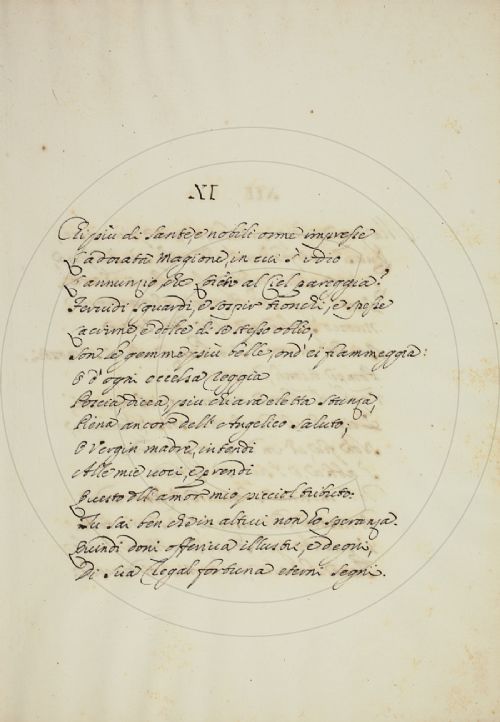 XI
Chi più di sante, e nobili orme impresse
L'adorata Magione, in cui s'udio
L'annunzio, che al Ciel pareggia?
Fervidi sguardi, e sospir tronchi, e spesse
Lacrime e dolce di se stesso oblio,
Son le gemme più belle, ond'ei fiammeggia:
O d'ogni eccelsa Reggia
Poscia, dicea, più chiara eletta stanza,
Piena ancor dell'Angelico Saluto;
O Vergin madre, intendi
Alle mie voci, e prendi
Questo dell'amor mio picciol tributo:
Tu sai ben che in altrui non ho speranza.
Quindi doni offeriva illustri, e degni,
Di sua Regal fortuna eterni segni.